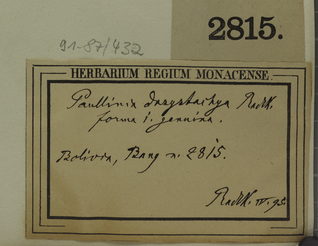 2815.
91-87/432
HERBARIUM REGIUM MONACENSE.
Paullinia dasystachya Radlk.
forma 1. genuina.
Bolivia, Bang n. 2815.
Radlk. IV. 95.